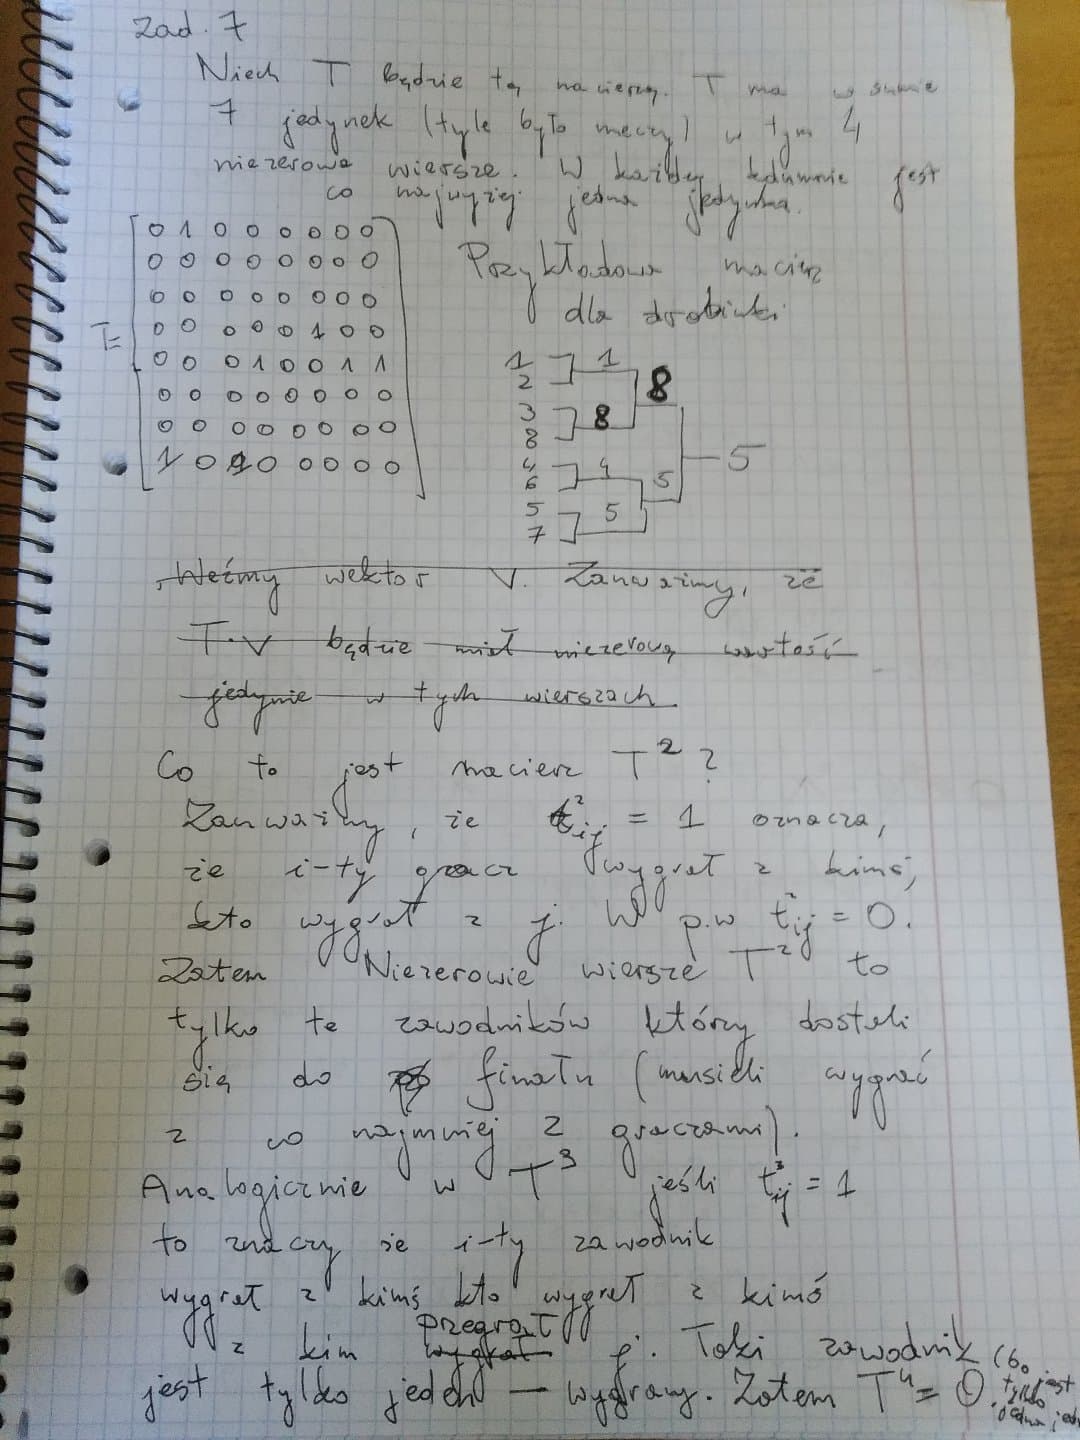 Zad. 7
Niech T będzie tą macierzą. T ma w sumie
7 jedynek (tyle było meczy) w tym 4
niezerowe wiersze. W każdej kolumnie jest
co najwyżej jedna jedynka.
T=
0 1 0 0 0 0 0 0
0 0 0 0 0 0 0 0
0 0 0 0 0 0 0 0
0 0 0 0 0 1 0 0
0 0 0 1 0 0 1 1
0 0 0 0 0 0 0 0
0 0 0 0 0 0 0 0
1 0 1 0 0 0 0 0
Przykładowa macierz
dla drabinki
1 1
2 8
3 8
8
4 4
6 5 5
5 5
7
Weźmy wektor V. Zauważmy, że
T·V będzie miał niezerową wartość
jedynie w tych wierszach
Co to jest macierz T² ?
Zauważmy, że t²ij = 1 oznacza,
że i-ty gracz wygrał z kimś,
kto wygrał z j. W p.w t²ij = 0.
Zatem Niezerowie wiersze T² to
tylko te zawodników którzy dostali
się do finału (musieli wygrać
z co najmniej 2 graczami).
Analogicznie w T³ jeśli t³ij = 1
to znaczy że i-ty zawodnik
wygrał z kimś kto wygrał z kimś
z kim wygrał przegrał j. Taki zawodnik
jest tylko jeden — wygrany. Zatem T⁴ = 0. (bo
tylko jest